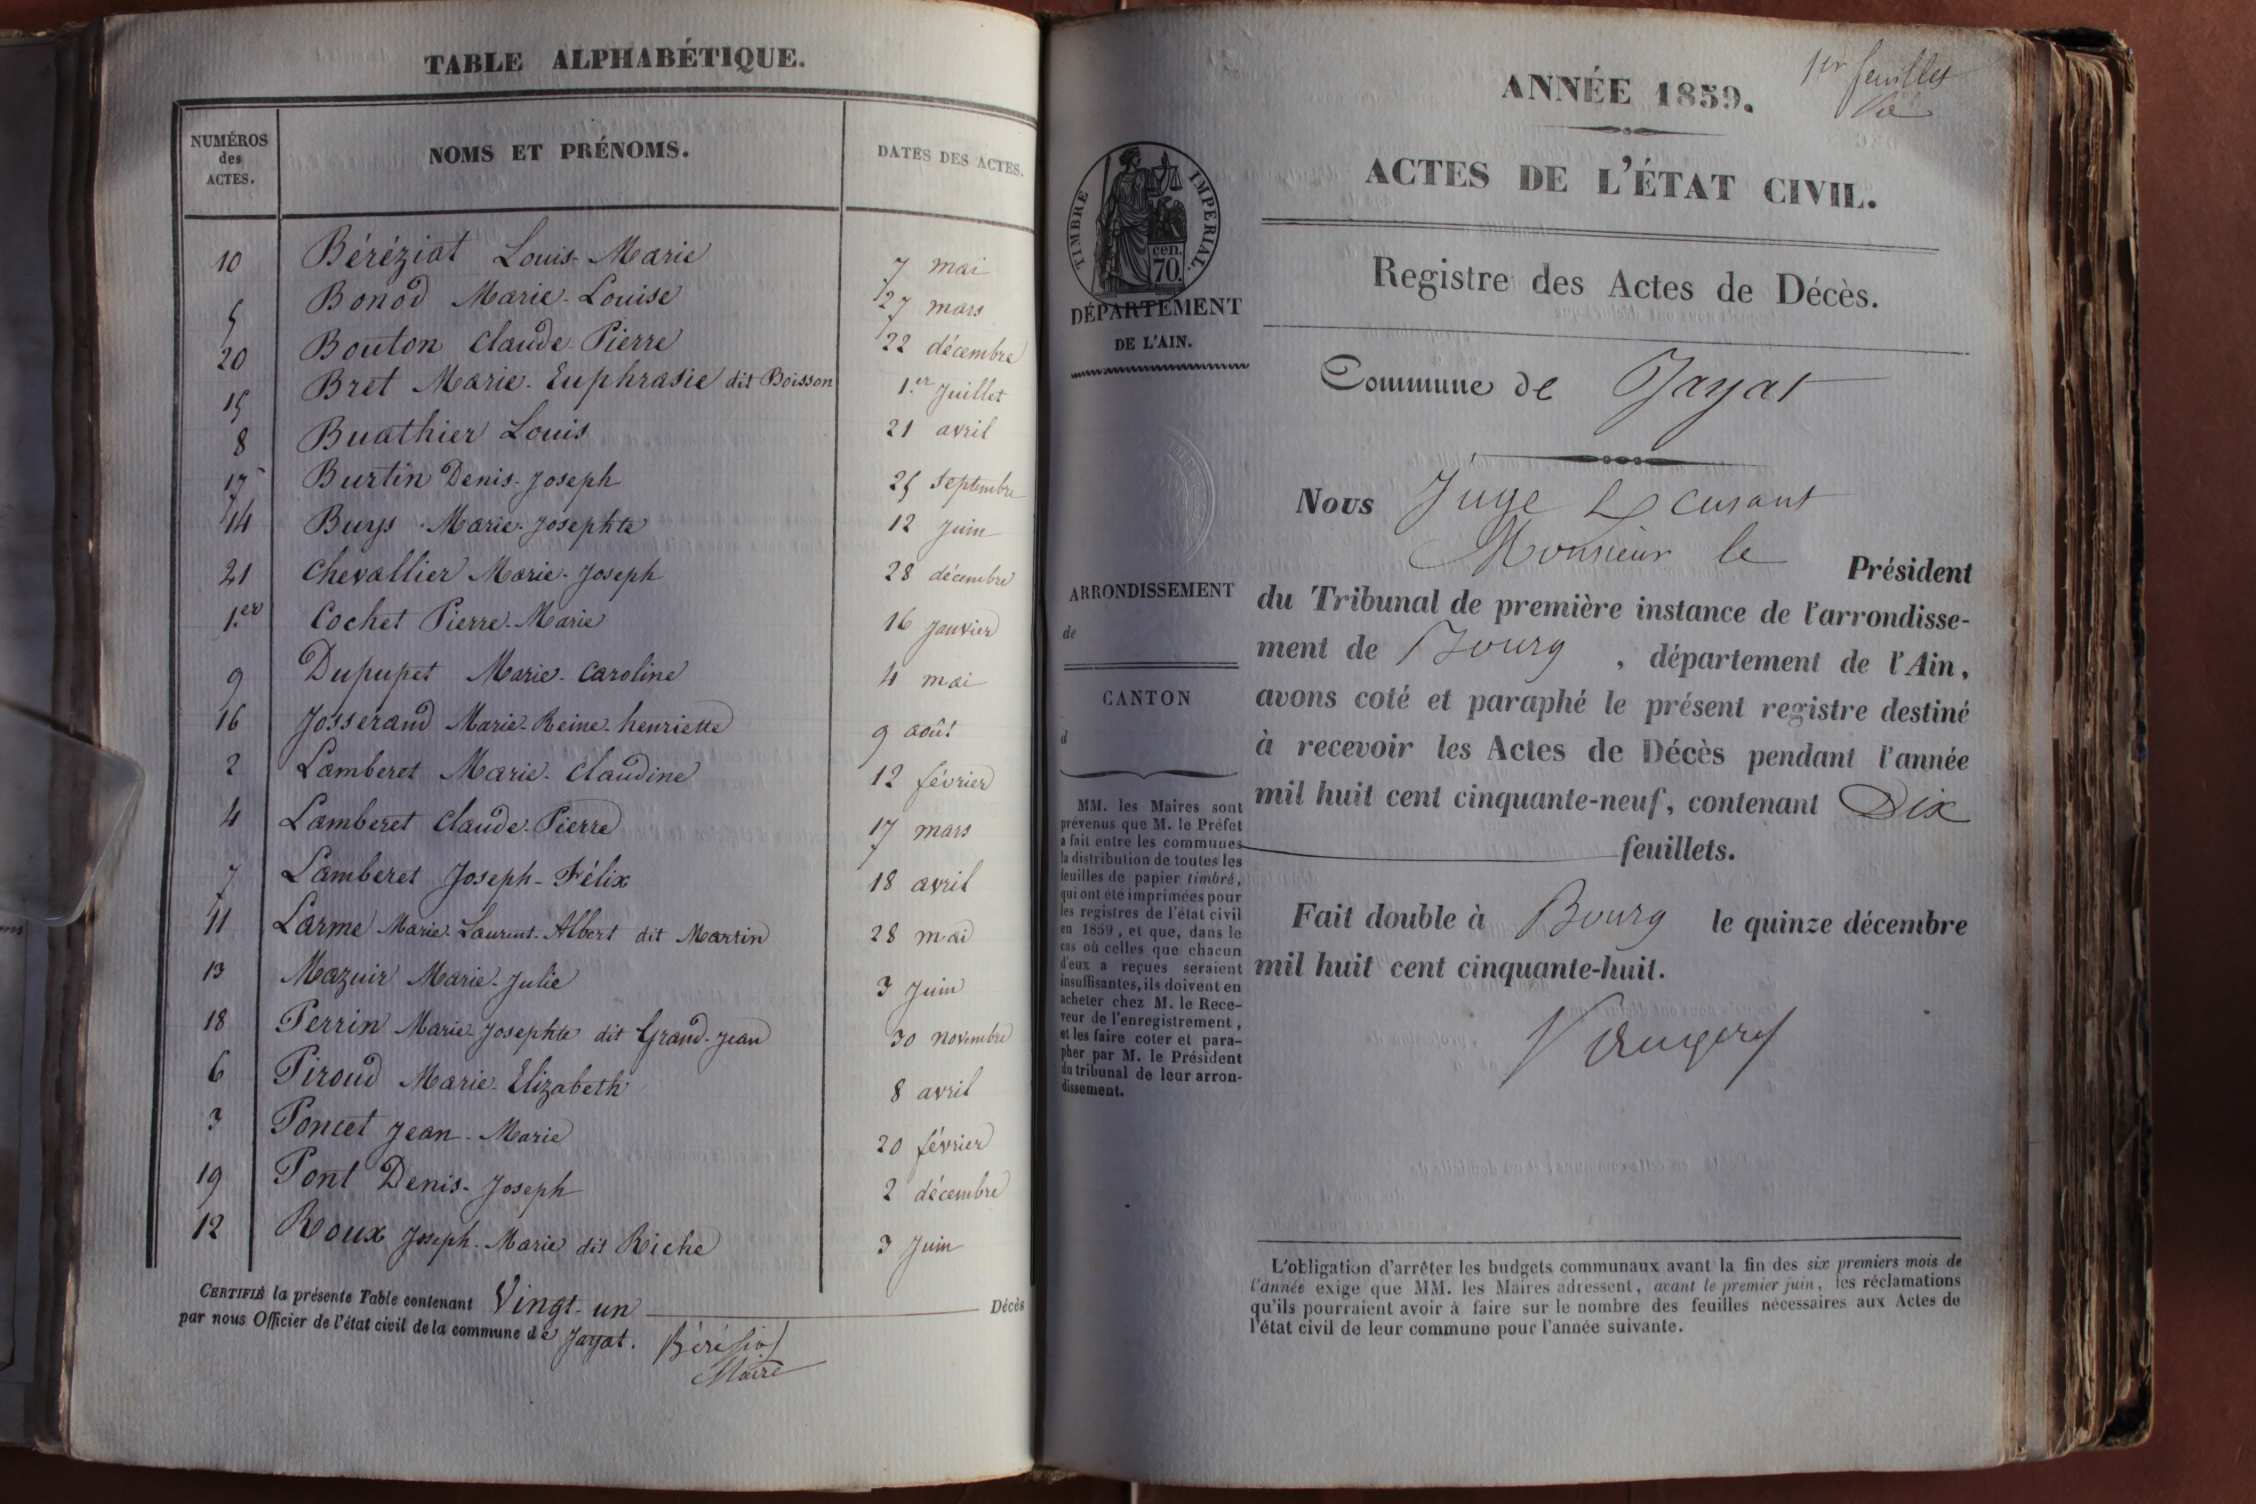 TABLE ALPHABÉTIQUE.
NUMÉROS des ACTES. NOMS ET PRÉNOMS. DATES DES ACTES.
10 Béréziat Louis-Marie 7 mai
5 Bonod Marie-Louise 27 mars
20 Bouton Claude-Pierre 22 décembre
15 Bret Marie-Euphrasie dit Boisson 1.er Juillet
8 Buathier Louis 21 avril
17 Burtin Denis-Joseph 25 septembre
14 Burys Marie-Josephte 12 Juin
21 Chevallier Marie-Joseph 28 décembre
1.er Cochet Pierre-Marie 16 Janvier
9 Dupupet Marie-Caroline 4 mai
16 Josserand Marie-Reine-henriette 9 août
2 Lamberet Marie-Claudine 12 février
4 Lamberet Claude-Pierre 17 mars
7 Lamberet Joseph-Félix 18 avril
11 Larme Marie-Laurent-Albert dit Martin 28 mai
13 Mazuir Marie-Julie 3 Juin
18 Perrin Marie-Josephte dit Grand-Jean 30 novembre
6 Piroud Marie-Elizabeth 8 avril
3 Poncet Jean-Marie 20 février
19 Pont Denis-Joseph 2 décembre
12 Roux Joseph-Marie dit Riche 3 Juin
CERTIFIÉ la présente Table contenant Vingt-un Décès
par nous Officier de l'état civil de la commune de Jayat.
Maire
1er feuillet
ANNÉE 1859.
ACTES DE L'ÉTAT CIVIL.
TIMBRE IMPERIAL.
cen.
70.
DÉPARTEMENT
DE L'AIN.
Registre des Actes de Décès.
Commune de Jayat
Nous Juge
Monsieur le Président
du Tribunal de première instance de l'arrondisse-
ment de Bourg, département de l'Ain,
avons coté et paraphé le présent registre destiné
à recevoir les Actes de Décès pendant l'année
mil huit cent cinquante-neuf, contenant Dix
feuillets.
Fait double à Bourg le quinze décembre
mil huit cent cinquante-huit.
ARRONDISSEMENT
de
CANTON
d
MM. les Maires sont
prévenus que M. le Préfet
a fait entre les communes
la distribution de toutes les
feuilles de papier timbré,
qui ont été imprimées pour
les registres de l'état civil
en 1859, et que, dans le
cas où celles que chacun
d'eux a reçues seraient
insuffisantes, ils doivent en
acheter chez M. le Rece-
veur de l'enregistrement,
et les faire coter et para-
pher par M. le Président
du tribunal de leur arron-
dissement.
L'obligation d'arrêter les budgets communaux avant la fin des six premiers mois de
l'année exige que MM. les Maires adressent, avant le premier juin, les réclamations
qu'ils pourraient avoir à faire sur le nombre des feuilles nécessaires aux Actes de
l'état civil de leur commune pour l'année suivante.